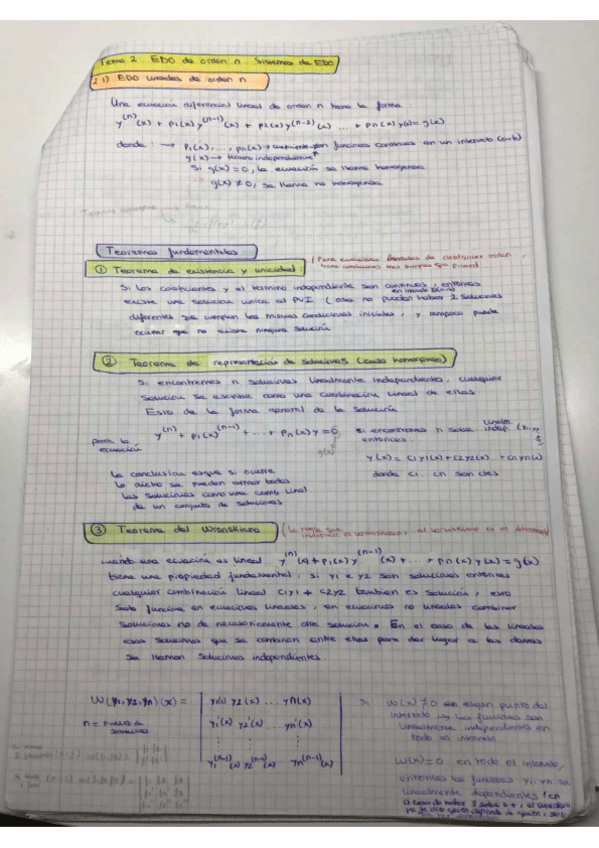 Tema 2. EDO de orden n. Sistemas de EDO
2.1) EDO lineales de orden n
Una ecuación diferencial lineal de orden n tiene la forma
y^(n)(x) + p1(x) y^(n-1)(x) + p2(x) y^(n-2)(x) ... + pn(x) y(x) = g(x)
donde → p1(x), ..., pn(x) → coeficientes son funciones continuas en un intervalo (a,b)
g(x) → término independiente
Si g(x) = 0, la ecuación se llama homogénea
g(x) ≠ 0, se llama no homogénea
Teoremas fundamentales
① Teorema de existencia y unicidad:
(Para ecuaciones lineales de cualquier orden, tiene condiciones más simples que Picard)
Si los coeficientes y el término independiente son continuos, entonces
existe una solución única al PVI (osea no pueden haber 2 soluciones
diferentes que cumplan las mismas condiciones iniciales, y tampoco puede
ocurrir que no exista ninguna solución
② Teorema de representación de soluciones (caso homogéneo)
Si encontramos n soluciones linealmente independiente, cualquier
solución se escribe como una combinación lineal de ellas
Esto da la forma general de la solución
para la ecuación y^(n) + p1(x) y^(n-1) + ... + pn(x) y = 0 si encontramos n soluc
g(x)
entonces.
y(x) = c1y1(x) + c2y2(x) .. + cnyn(x)
donde c1... cn son ctes
La conclusión es que si ocurre
lo dicho se pueden armar todas
las soluciones como una comb. lineal
de un conjunto de soluciones
③ Teorema del Wronskiano
cuando una ecuación es lineal y^(n)(x) + p1(x) y^(n-1)(x) + ... + pn(x) y(x) = g(x)
tiene una propiedad fundamental, si y1 e y2 son soluciones entonces
cualquier combinación lineal c1y1 + c2y2 también es solución, esto
solo funciona en ecuaciones lineales, en ecuaciones no lineales combinar
soluciones no da necesariamente otra solución. En el caso de las lineales
esas soluciones que se combinan entre ellas para dar lugar a las demás
se llaman soluciones independientes.
W(y1, y2, yn)(x) =
n = número de soluciones
| y1(x) y2(x) ... yn(x) |
| y1'(x) y2'(x) ... yn'(x) |
| ⋮ ⋮ ⋮ |
| y1^(n-1)(x) y2^(n-1)(x) yn^(n-1)(x) |
Si w(x) ≠ 0 en algún punto del
intervalo las funciones son
linealmente independientes en
todo el intervalo
w(x) = 0 en todo el intervalo,
entonces las funciones y1..yn son
linealmente dependientes